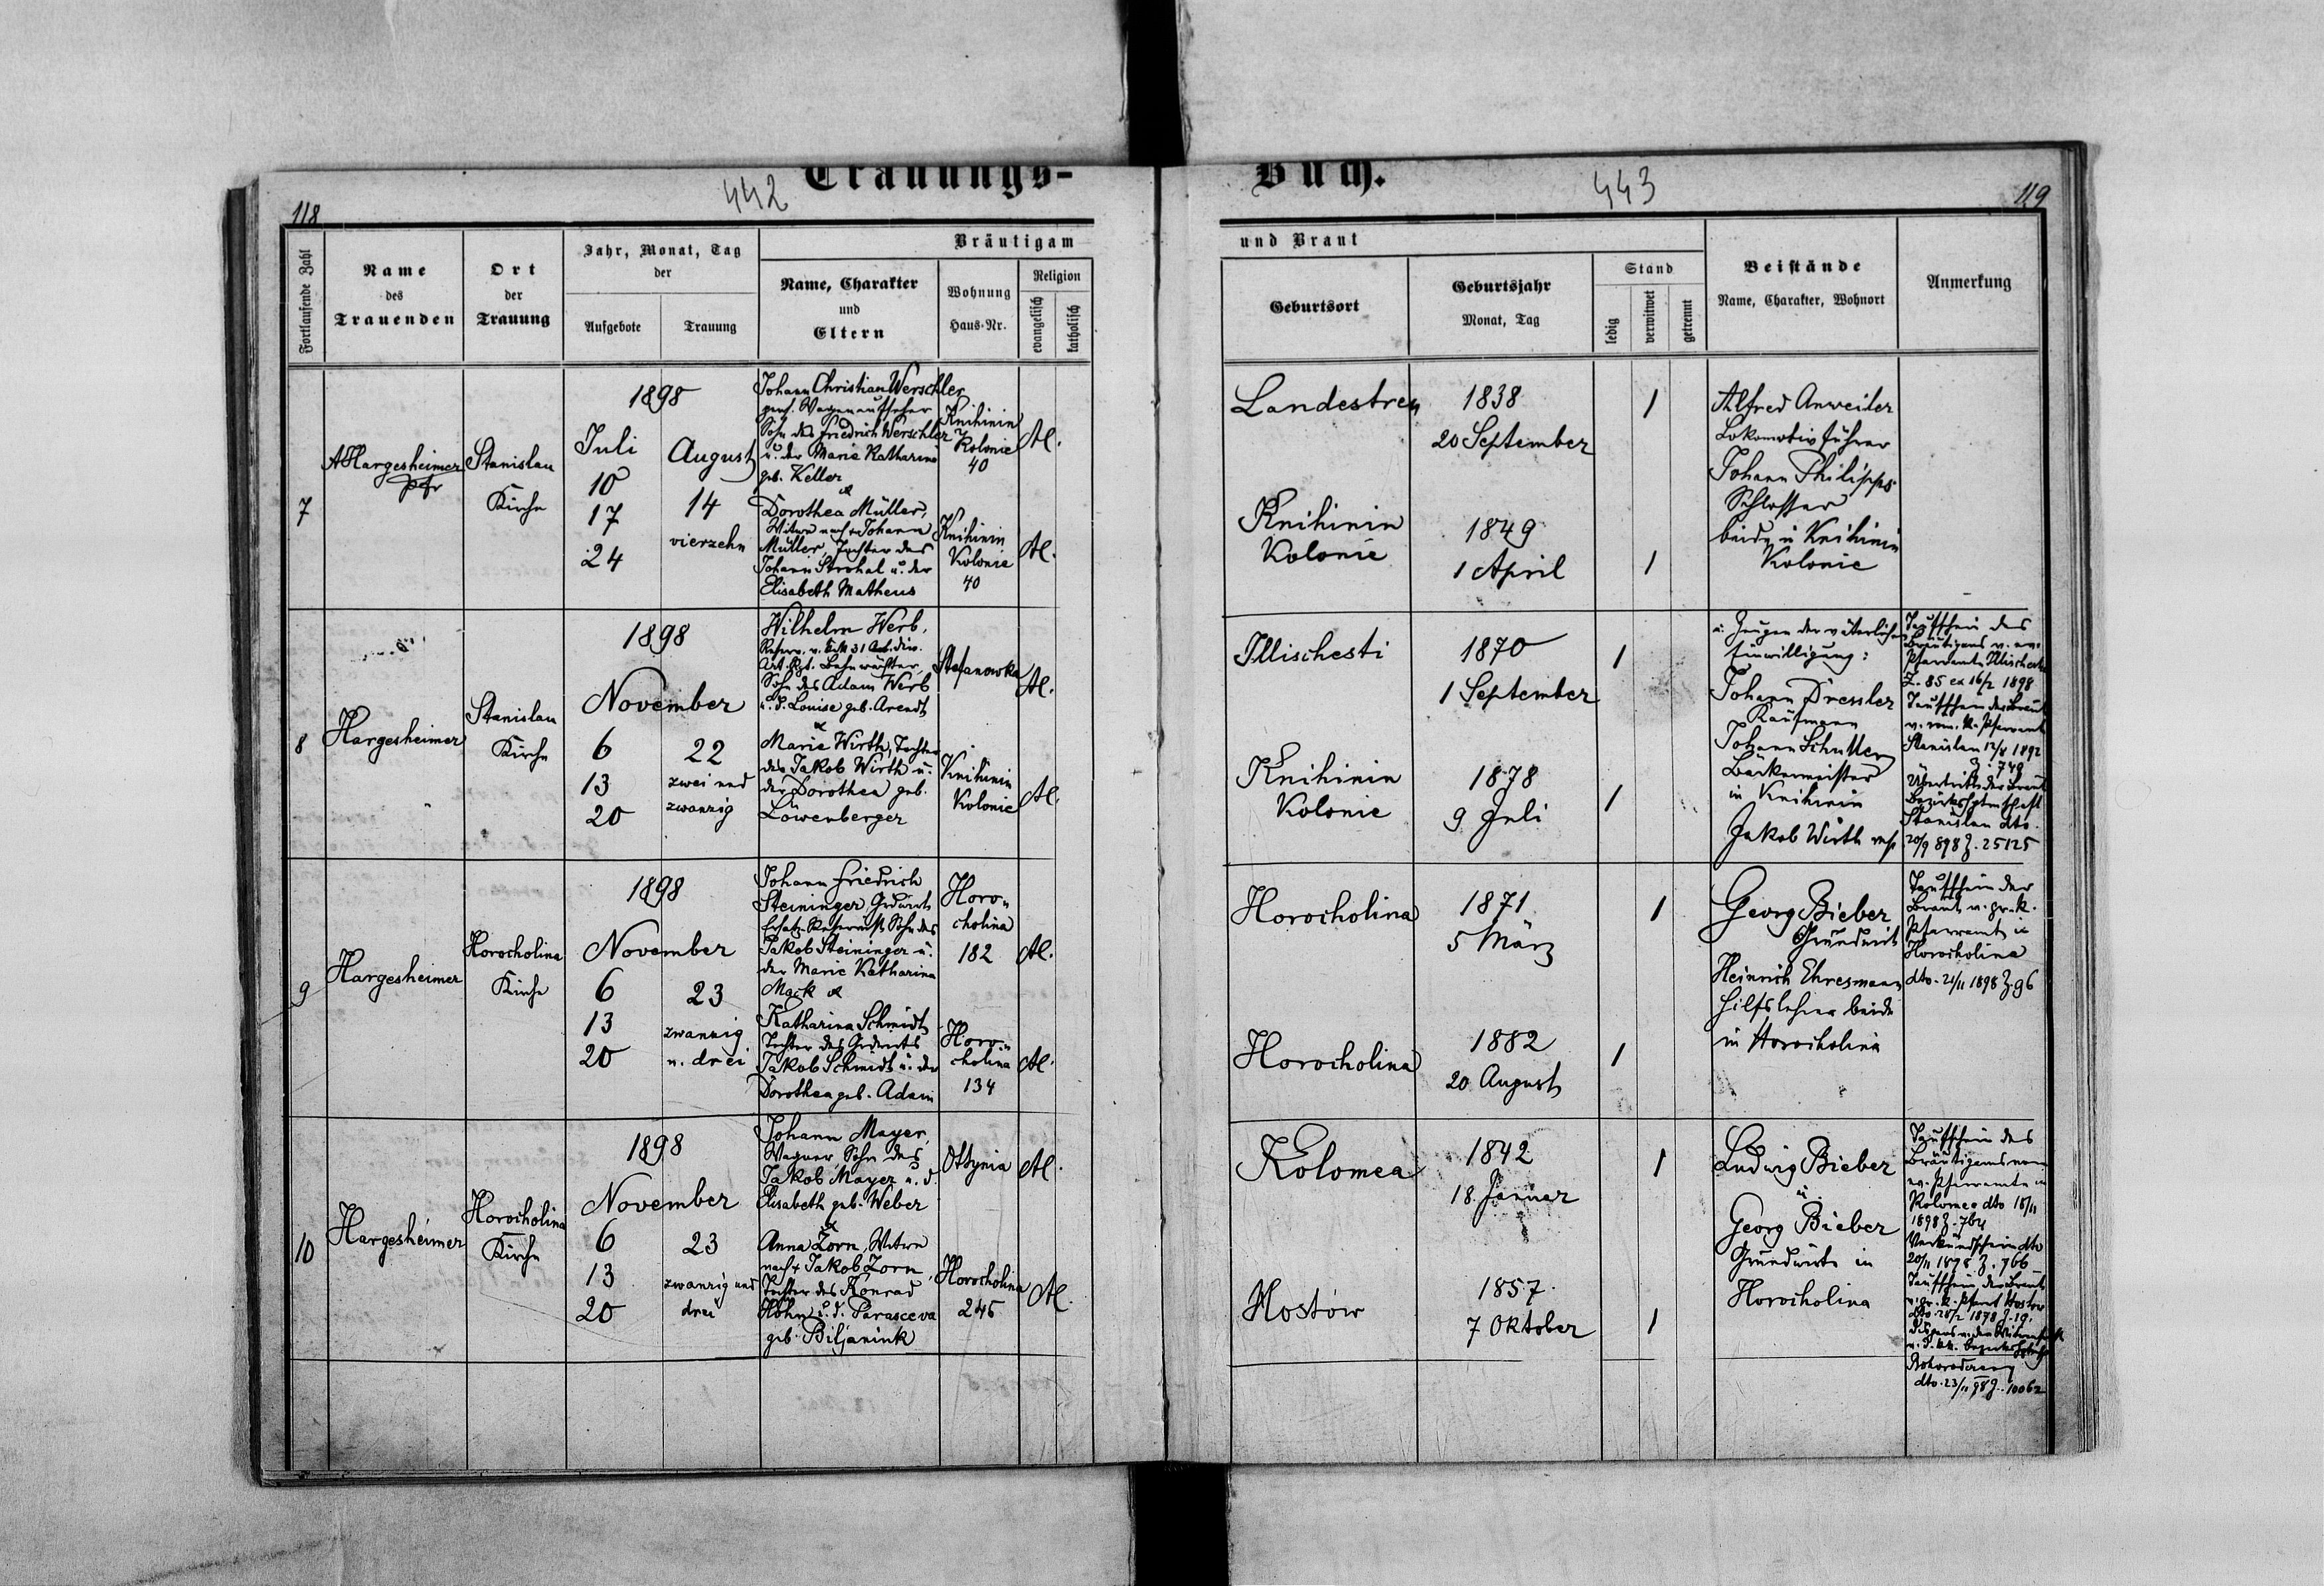 Trauungs-
442
118
Fortlaufende Zahl
Name
des
Trauenden
Ort
der
Trauung
Jahr, Monat, Tag
der
Aufgebote
Trauung
Bräutigam
Name, Charakter
und
Eltern
Wohnung
Haus-Nr.
Religion
evangelisch
katholisch
7
AHargesheimer
Pfr
Stanislau
Kirche
1898
Juli
10
17
24
August
14
vierzehn
Johann Christian Werschler
pens. Wagenaufseher
Sohn des Friedrich Werschler
u. der Marie Katharina
geb. Keller
&
Dorothea Müller,
Witwe nach + Johann
Müller, Tochter des
Johann Strohal u. der
Elisabeth Matheus
Knihinin
Kolonie
40
Knihinin
Kolonie
40
Al.
Al.
8
Hargesheimer
Stanislau
Kirche
1898
November
6
13
20
22
zwei und
zwanzig
Wilhelm Werb,
Bahnwächter,
Sohn des Adam Werb
u. d. Louise geb. Arendt
&
Marie Wirth, Tochter
des Jakob Wirth u.
der Dorothea geb.
Löwenberger
Stefanowka
Knihinin
Kolonie
Al.
Al.
9
Hargesheimer
Horocholina
Kirche
1898
November
6
13
20
23
zwanzig
u. drei
Johann Friedrich
Steininger, Grdwirt
Ersatz-Reservist Sohn des
Jakob Steininger u.
der Marie Katharina
Mack &
Katharina Schmidt
Tochter des Grdwirts
Jakob Schmidt u. der
Dorothea geb. Adam
Horo-
cholina
182
Horo-
cholina
134
Al.
Al.
10
Hargesheimer
Horocholina
Kirche
1898
November
6
13
20
23
zwanzig und
drei
Johann Mayer,
Wagner, Sohn des
Jakob Mayer u. d.
Elisabeth geb. Weber
&
Anna Zorn, Witwe
nach + Jakob Zorn
Tochter des Konrad
Höhn u. d. Parasceva
geb. Biljanink
Ottynia
Horocholina
245
Al.
Al.
Buch.
443
119
und Braut
Geburtsort
Geburtsjahr
Monat, Tag
Stand
ledig
verwitwet
getrennt
Beistände
Name, Charakter, Wohnort
Anmerkung
Landestreu
1838
20 September
1
Knihinin
Kolonie
1849
1 April
1
Alfred Anweiler
Lokomotivführer
Johann Philipps
Schlosser
beide in Knihinin
Kolonie
Illischesti
1870
1 September
1
Knihinin
Kolonie
1878
9 Juli
1
u. Zeugen der väterlichen
Einwilligung:
Johann Dressler
Kaufmann
Johann Schuller
Bäckermeister
in Knihinin
Jakob Wirth
Taufschein des
Bräutigams v. ev.
Pfarramte Illischesti
Z. 85 ex 16/2 1898
Taufschein der Braut
v. röm. k. Pfarramt
Stanislau 12/8 1892
Z. 749
Übertritt der Braut
Bezirkshptmschaft
Stanislau dto.
20/9 898 Z. 25125
Horocholina
1871
5 März
1
Horocholina
1882
20 August
1
Georg Bieber
Grundwirt
Heinrich Ehresmann
Hilfslehrer beide
in Horocholina
Taufschein der
Braut v. gr. k.
Pfarramt in
Horocholina
dto. 21/11 1898 Z. 96
Kolomea
1842
18. Januar
1
Hostów
1857.
7 Oktober
1
Ludwig Bieber
u.
Georg Bieber
Grundwirte in
Horocholina
Taufschein des
Bräutigams vom
ev. Pfarramte in
Kolomea dto 18/11
1898 Z. 764
Verkündschein dto
20/11 1898 Z. 766
Taufschein der Braut
v. gr. k. Pfarramt Hostow
dto. 28/2 1898 Z. 19.
Bohorodczany
dto. 23/11 98 Z. 10062